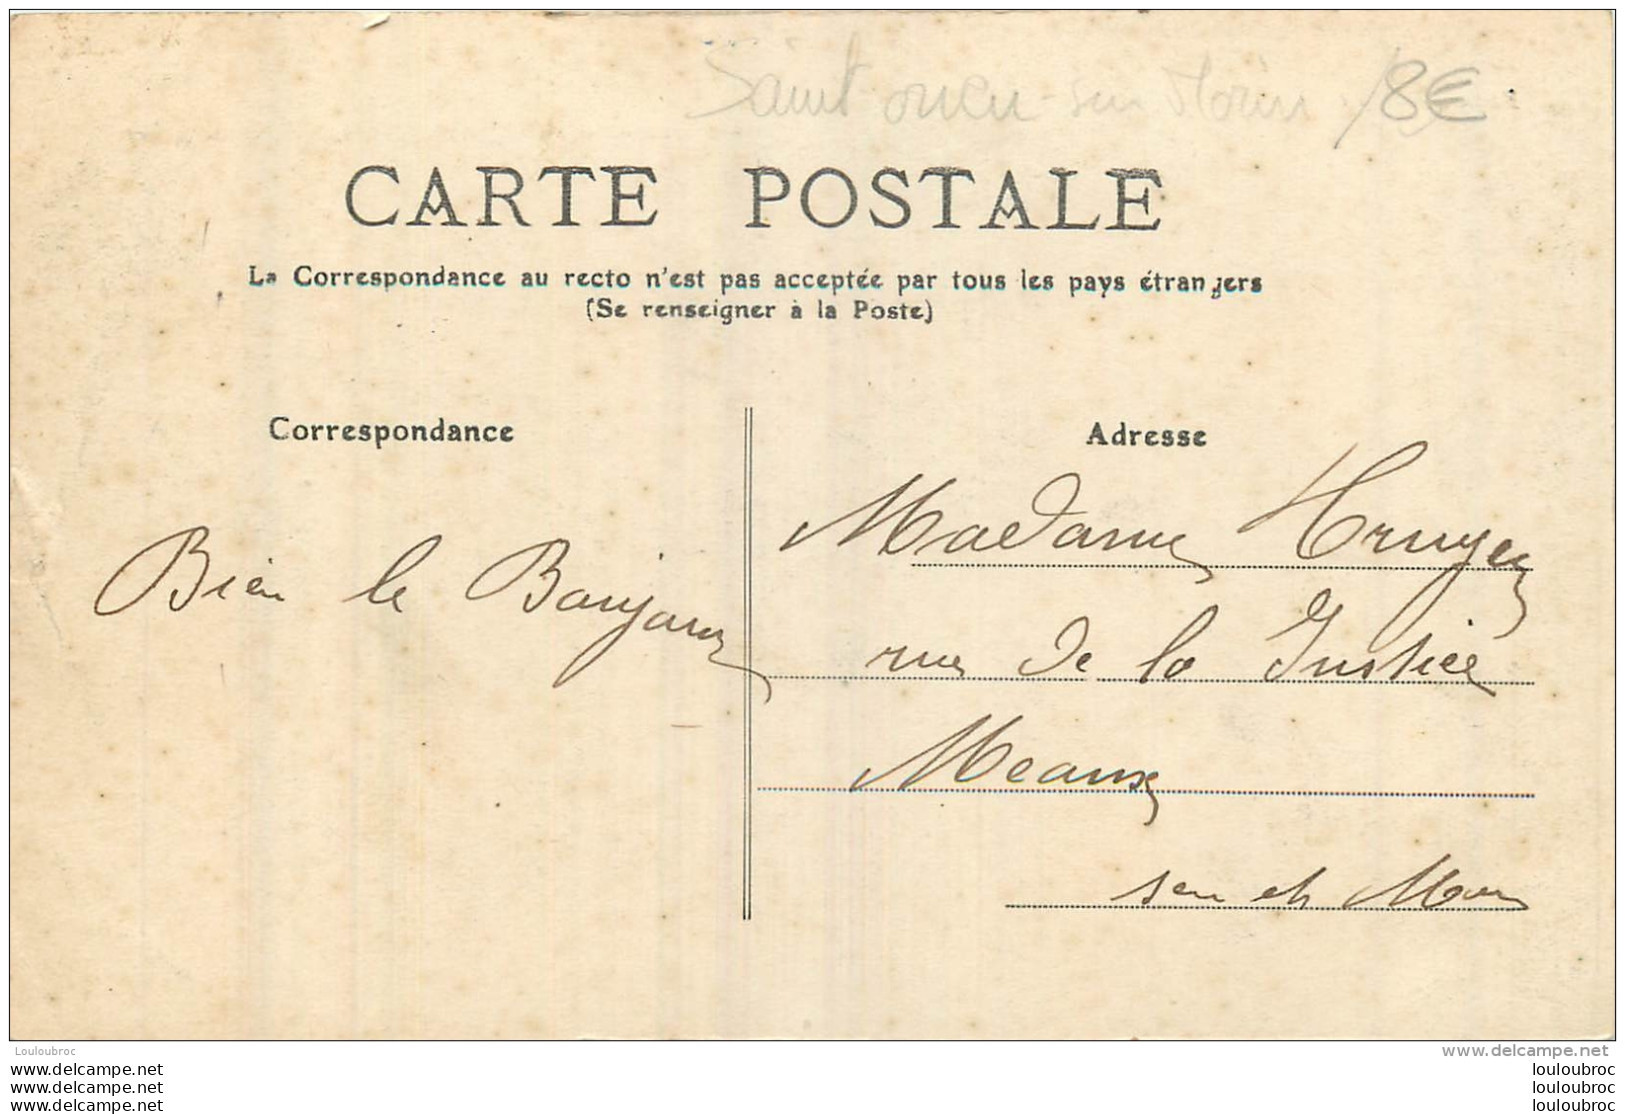 Saint ouen sur Morin 8€
CARTE POSTALE
La Correspondance au recto n'est pas acceptée par tous les pays étrangers
(Se renseigner à la Poste)
Correspondance
Adresse
Bien le Bonjour
Madame
rue de la Justice
Meaux
sen et Mar
Louloubroc
www.delcampe.net
louloubroc
louloubroc
louloubroc
www.delcampe.net
www.delcampe.net
www.delcampe.net
louloubroc
louloubroc
louloubroc